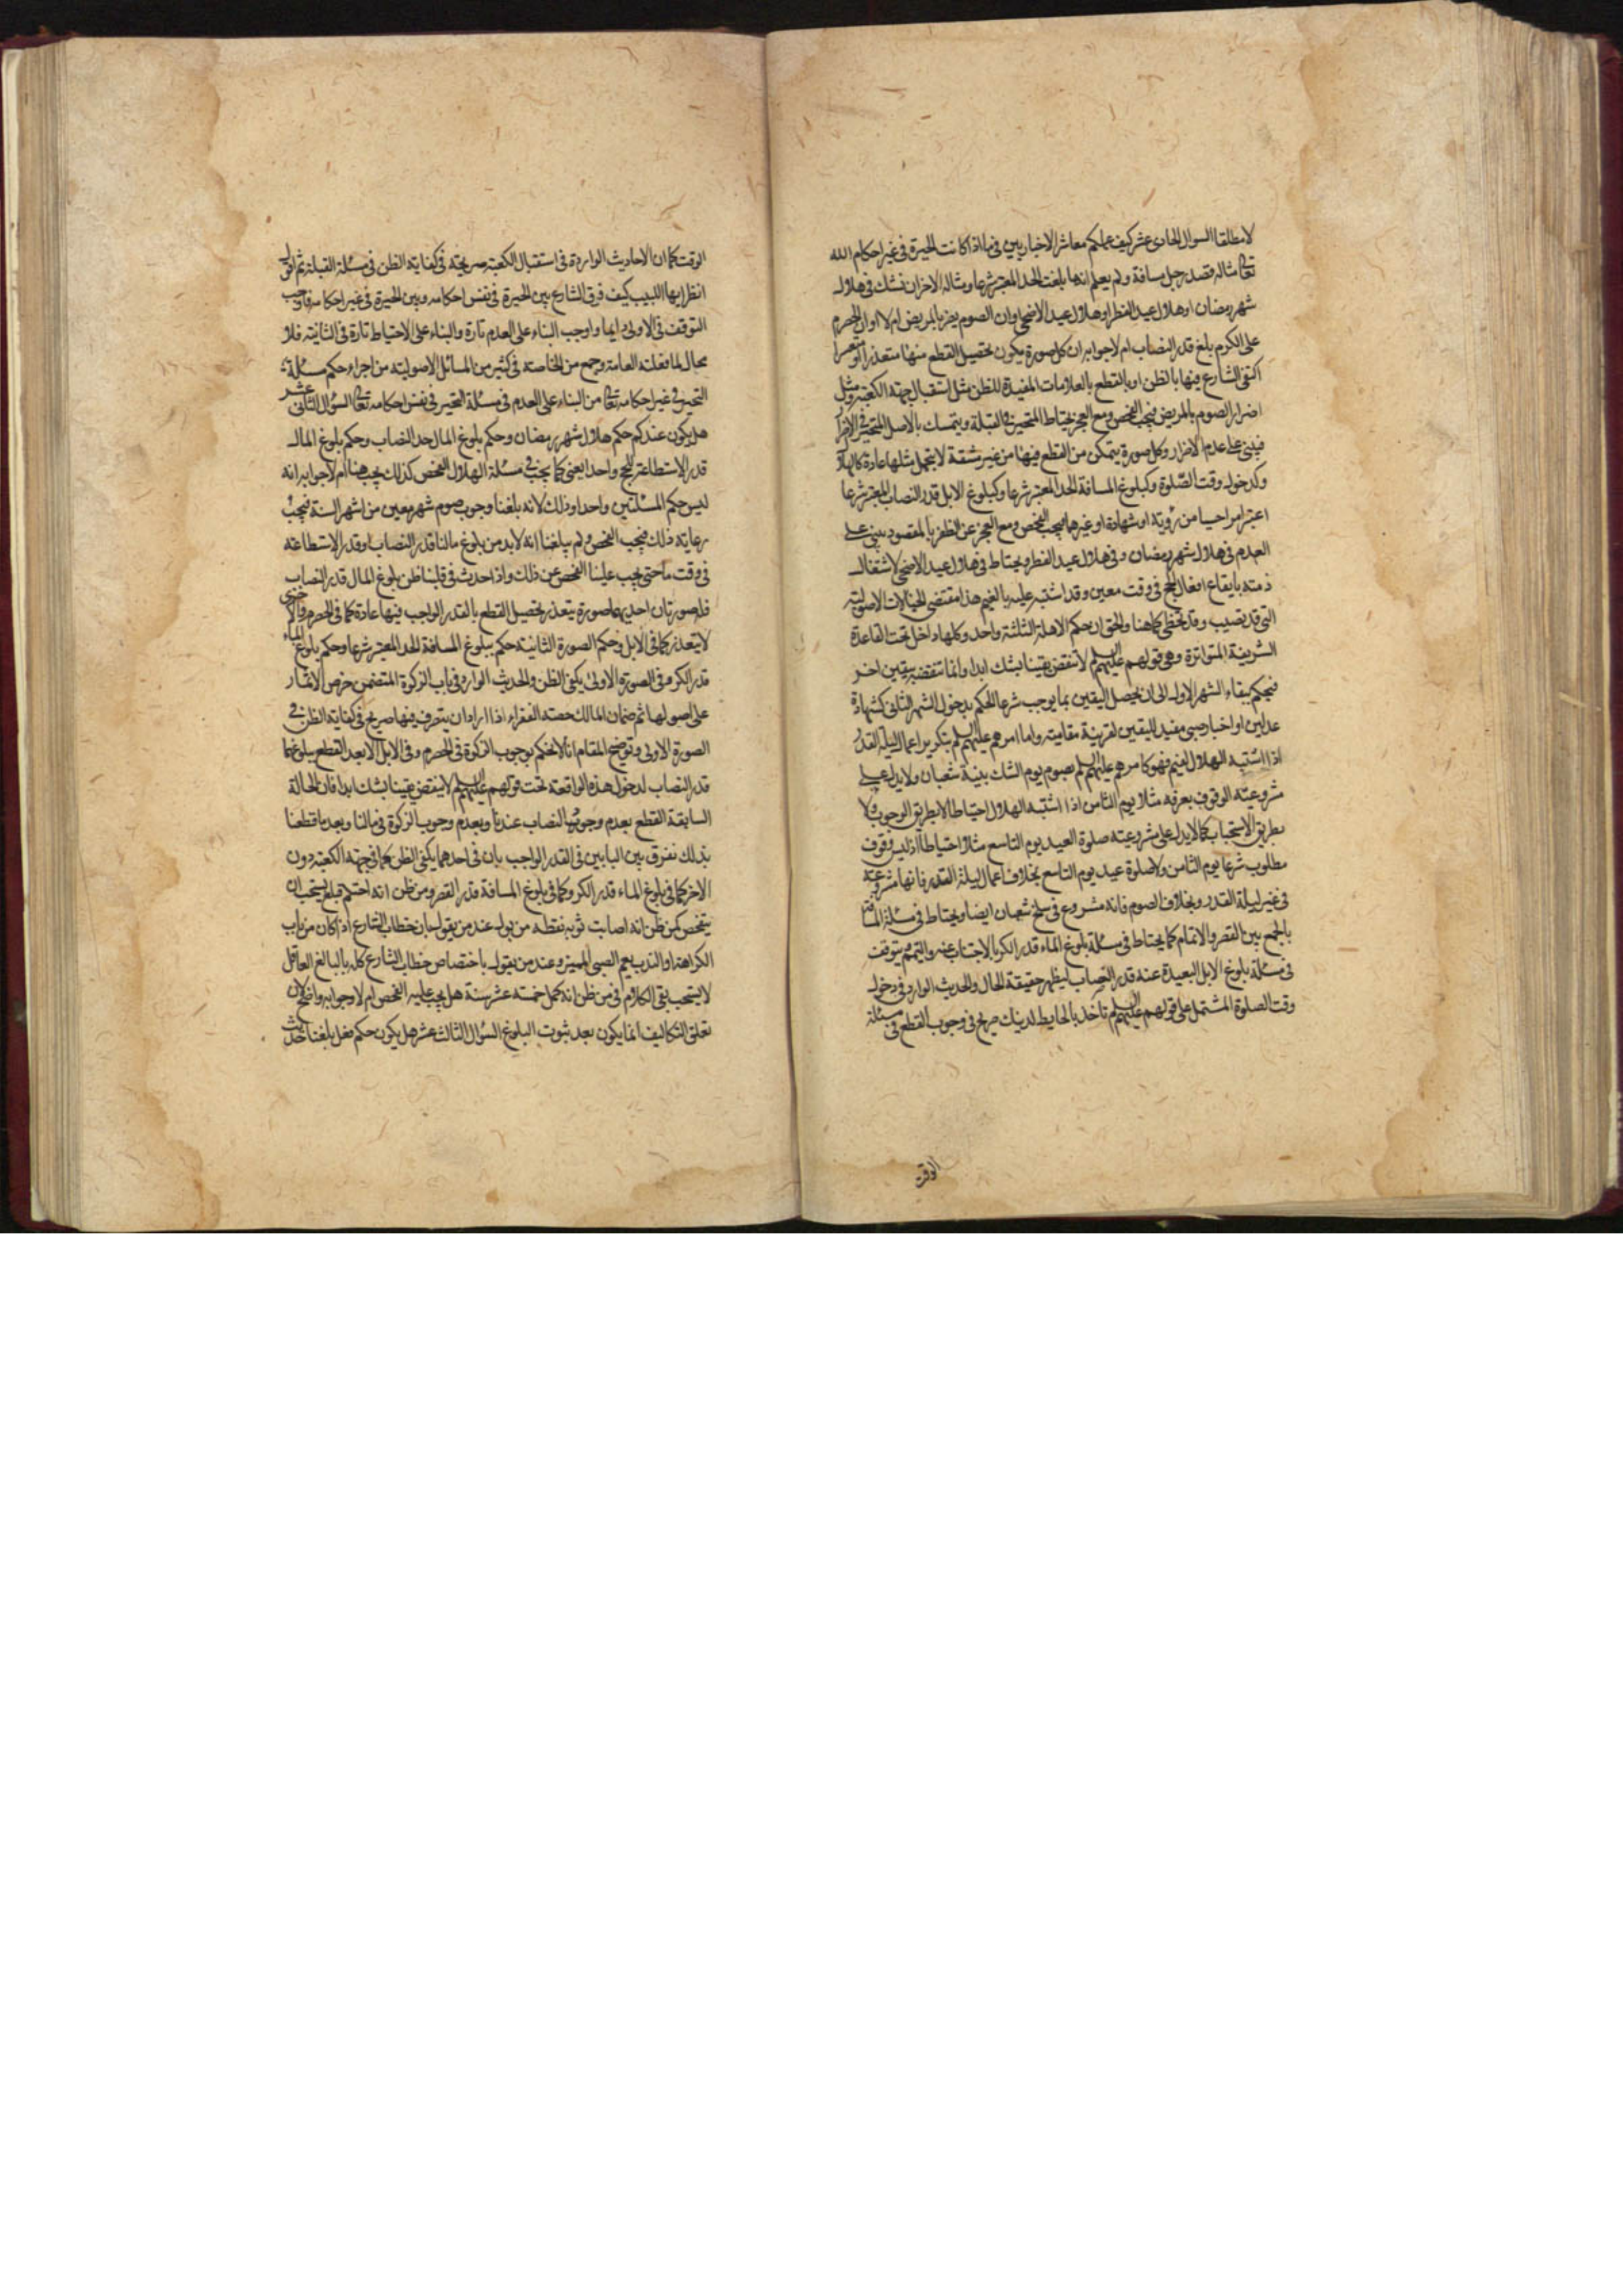 لا مطلقا السوال الحادى عشر كيف عملكم معاشر الاخباريين فى ما اذا كانت الحيرة فى غير احكام الله
تعالى مثاله قصد رجل مسافة ولم يعلم انها بلغت الحد المعتبر شرعا ومثاله الاخر ان نشك فى هلال
شهر رمضان او هلال عيد الفطر او هلال عيد الاضحى وان الصوم يضر بالمريض ام لا او ان الحصرم
على الكرم بلغ قدر النصاب ام لا جوابه ان كل صورة يكون تحصيل القطع منها متعذرا او متعسرا
اكتفى الشارع فيها بالظن او بالقطع بالعلامات المفيدة للظن مثل استقبال جهة الكعبة ومثل
اضرار الصوم بالمريض فيجب الفحص ومع العجز يحتاط المتحير فى القبلة ويتمسك بالاصل المتحير فى الاضرار
فيبنى على عدم الاضرار وكل صورة يتمكن من القطع فيها من غير مشقة لا يتحمل مثلها عادة كالهلال
وكدخول وقت الصلوة وكبلوغ المسافة الحد المعتبر شرعا وكبلوغ الابل قدر النصاب المعتبر شرعا
اعتبر امر احسيا من رؤيته او شهادة او غيرهما فيجب الفحص ومع العجز عن الظفر بالمقصود يبنى على
العدم فى هلال شهر رمضان وفى هلال عيد الفطر ويحتاط فى هلال عيد الاضحى لاشتغال
ذمته بايقاع افعال الحج فى وقت معين وقد اشتبه عليه بالغيم هذا مقتضى الخيالات الاصولية
التى قد تصيب وقد تخطى كما هنا والحق ان حكم الاهلة الثلثة واحد وكلها داخل تحت القاعدة
الشريفة المتواترة وهى قولهم عليهم السلم لا تنقض يقينا بشك ابدا وانما تنقضه بيقين اخر
فيحكم ببقاء الشهر الاول الى ان يحصل اليقين بما يوجب شرعا الحكم بدخول الشهر الثانى كشهادة
عدلين او اخبار صبى مفيد اليقين لقرينة مقامية واما امرهم عليهم السلم بتكرير اعمال ليلة القدر
اذا اشتبه الهلال لغيم فهو كامرهم عليهم السلم بصوم يوم الشك بنية شعبان ولا يدل على
مشروعية الوقوف بعرفه مثلا يوم الثامن اذا اشتبه الهلال احتياطا لا بطريق الوجوب ولا
بطريق الاستحباب كما لا يدل على مشروعية صلوة العيد يوم التاسع مثلا احتياطا اذ ليس وقوف
مطلوب شرعا يوم الثامن ولا صلوة عيد يوم التاسع بخلاف اعمال ليلة القدر فانها مشروعة
فى غير ليلة القدر وبخلاف الصوم فانه مشروع فى سلخ شعبان ايضا ويحتاط فى مسئلة المسافة
بالجمع بين القصر والاتمام كما يحتاط فى مسئلة بلوغ الماء قدر الكر بالاجتناب عنه والتيمم ويتوقف
فى مسئلة بلوغ الابل البعيدة عنه قدر النصاب ليظهر حقيقة الحال والحديث الوارد فى دخول
وقت الصلوة المشتمل على قولهم عليهم السلم تاخذ بالحايطة لدينك صريح فى وجوب القطع فى مسئلة
الوقت
الوقت كما ان الاحاديث الواردة فى استقبال الكعبة صريحة فى كفاية الظن فى مسئلة القبلة ثم اقول
انظر ايها اللبيب كيف فرق الشارع بين الحيرة فى نفس احكامه وبين الحيرة فى غير احكامه فاوجب
التوقف فى الاولى دايما واوجب البناء على العدم تارة والبناء على الاحتياط تارة فى الثانية فلا
مجال لما فعلته العامة وجمع من الخاصة فى كثير من المسائل الاصولية من اجراء حكم مسئلة
التحير فى غير احكامه تعالى من البناء على العدم فى مسئلة التحير فى نفس احكامه تعالى السؤال الثانى عشر
هل يكون عندكم حكم هلال شهر رمضان وحكم بلوغ المال حد النصاب وحكم بلوغ المال
قدر الاستطاعة للحج واحدا يعنى كما يجب فى مسئلة الهلال الفحص كذلك يجب هنا ام لا جوابه انه
ليس حكم المسئلتين واحدا وذلك لانه بلغنا وجوب صوم شهر معين من اشهر السنة فيجب
رعاية ذلك فيجب الفحص ولم يبلغنا انه لا بد من بلوغ مالنا قدر النصاب او قدر الاستطاعة
فى وقت ما حتى يجب علينا الفحص عن ذلك واذا حدث فى قلبنا ظن بلوغ المال قدر النصاب
فله صورتان احديهما صورة يتعذر تحصيل القطع بالقدر الواجب فيها عادة كما فى الحصرم والاخرى
لا يتعذر كما فى الابل وحكم الصورة الثانية حكم بلوغ المسافة الحد المعتبر شرعا وحكم بلوغ الماء
قدر الكر وفى الصورة الاولى يكفى الظن والحديث الوارد فى باب الزكوة المتضمن خرص الاثمار
على اصولها ثم ضمان المالك حصة الفقراء اذا اراد ان يتصرف فيها صريح فى كفاية الظن فى
الصورة الاولى وتوضيح المقام انا لا نحكم بوجوب الزكوة فى الحصرم وفى الابل الا بعد القطع ببلوغهما
قدر النصاب لدخول هذه الواقعة تحت قولهم عليهم السلم لا ينقض يقينا بشك ابدا فان الحالة
السابقة القطع بعدم وجود النصاب عندنا وبعدم وجوب الزكوة فى مالنا وبعد ما قطعنا
بذلك نفرق بين البابين فى القدر الواجب بان فى احدهما يكفى الظن كما فى جهة الكعبة دون
الاخر كما فى بلوغ الماء قدر الكر وكما فى بلوغ المسافة قدر القصر ومن ظن انه احتلم قيل يستحب ان
يتفحص كمن ظن انه اصابت ثوبه نقطة من بول عند من يقول بان خطاب الشارع اذا كان من باب
الكراهة او الندب يعم الصبى المميز وعند من يقول باختصاص خطاب الشارع كله بالبالغ العاقل
لا يستحب بقى الكلام فى من ظن انه كمل خمسة عشر سنة هل يجب عليه الفحص ام لا وجوابه واضح لان
تعلق التكاليف انما يكون بعد ثبوت البلوغ السؤال الثالث عشر هل يكون حكم فعل بلغنا حديث